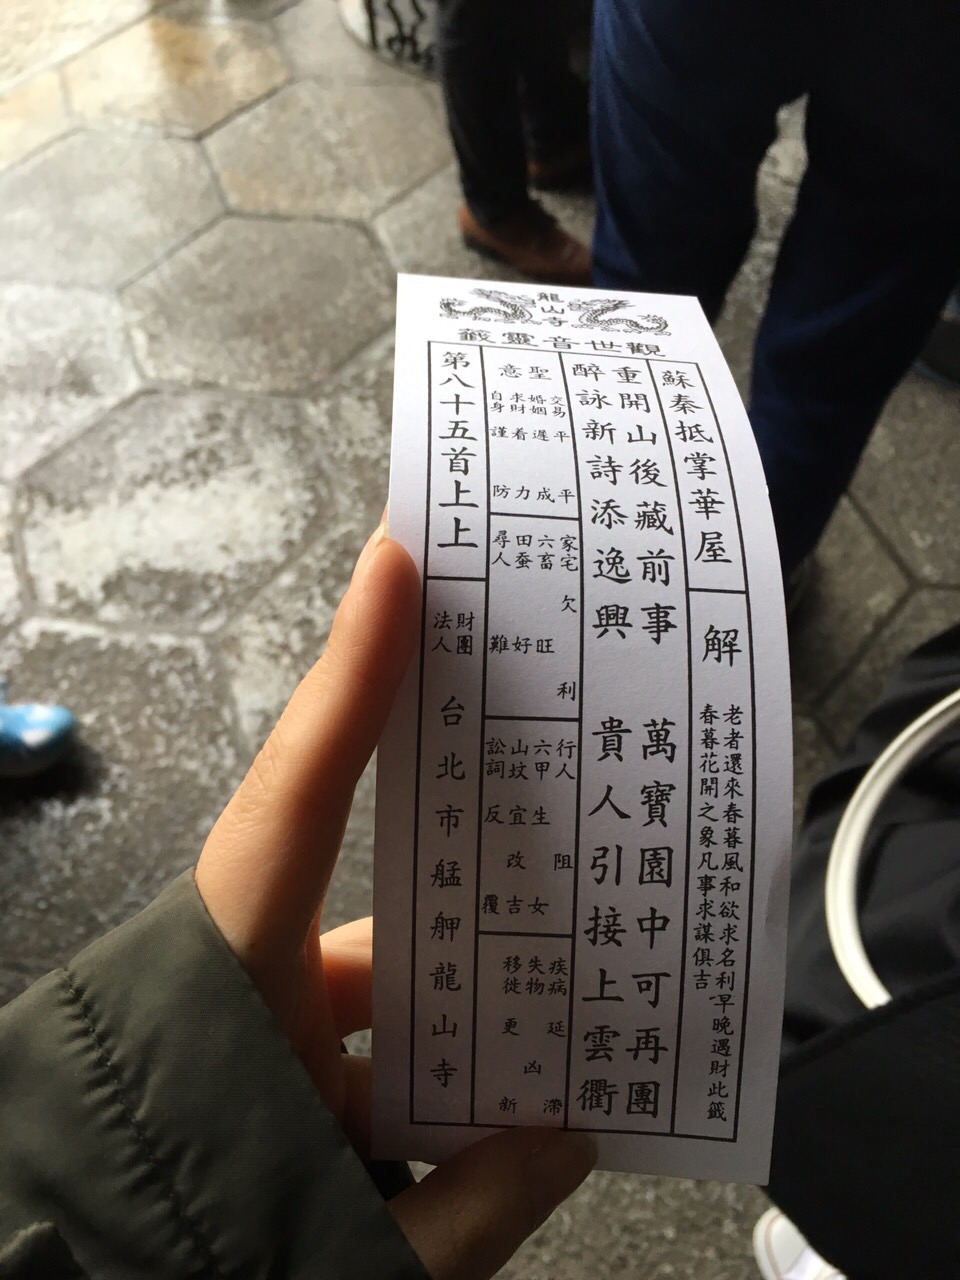 龍山寺
觀世音靈籤
蘇秦抵掌華屋
解
老者還來春暮風和欲求名利早晚遇財此籤
春暮花開之象凡事求謀俱吉
重開山後藏前事 萬寶園中可再團
醉詠新詩添逸興 貴人引接上雲衢
聖意
交易 平平
婚姻 遲成
求財 着力
自身 謹防
家宅 欠利
六畜 旺
田蚕 好
尋人 難
行人 阻
六甲 生女
山坟 宜改吉
訟詞 反覆
疾病 延滯
失物 凶
移徙 更新
第八十五首上上
財團法人
台北市艋舺龍山寺